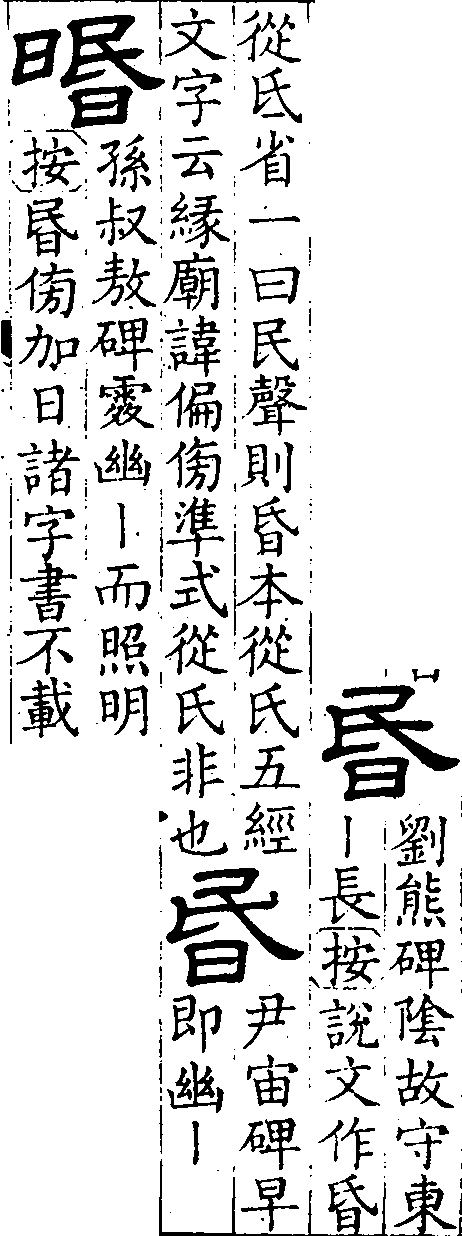 昬
劉熊碑陰故守東
丨長按說文作昏
從氐省一曰民聲則昏本從氏五經
文字云緣廟諱偏傍準式從氏非也
昬
尹宙碑早
即幽丨
孫叔敖碑幽丨而照明
按昬傍加日諸字書不載